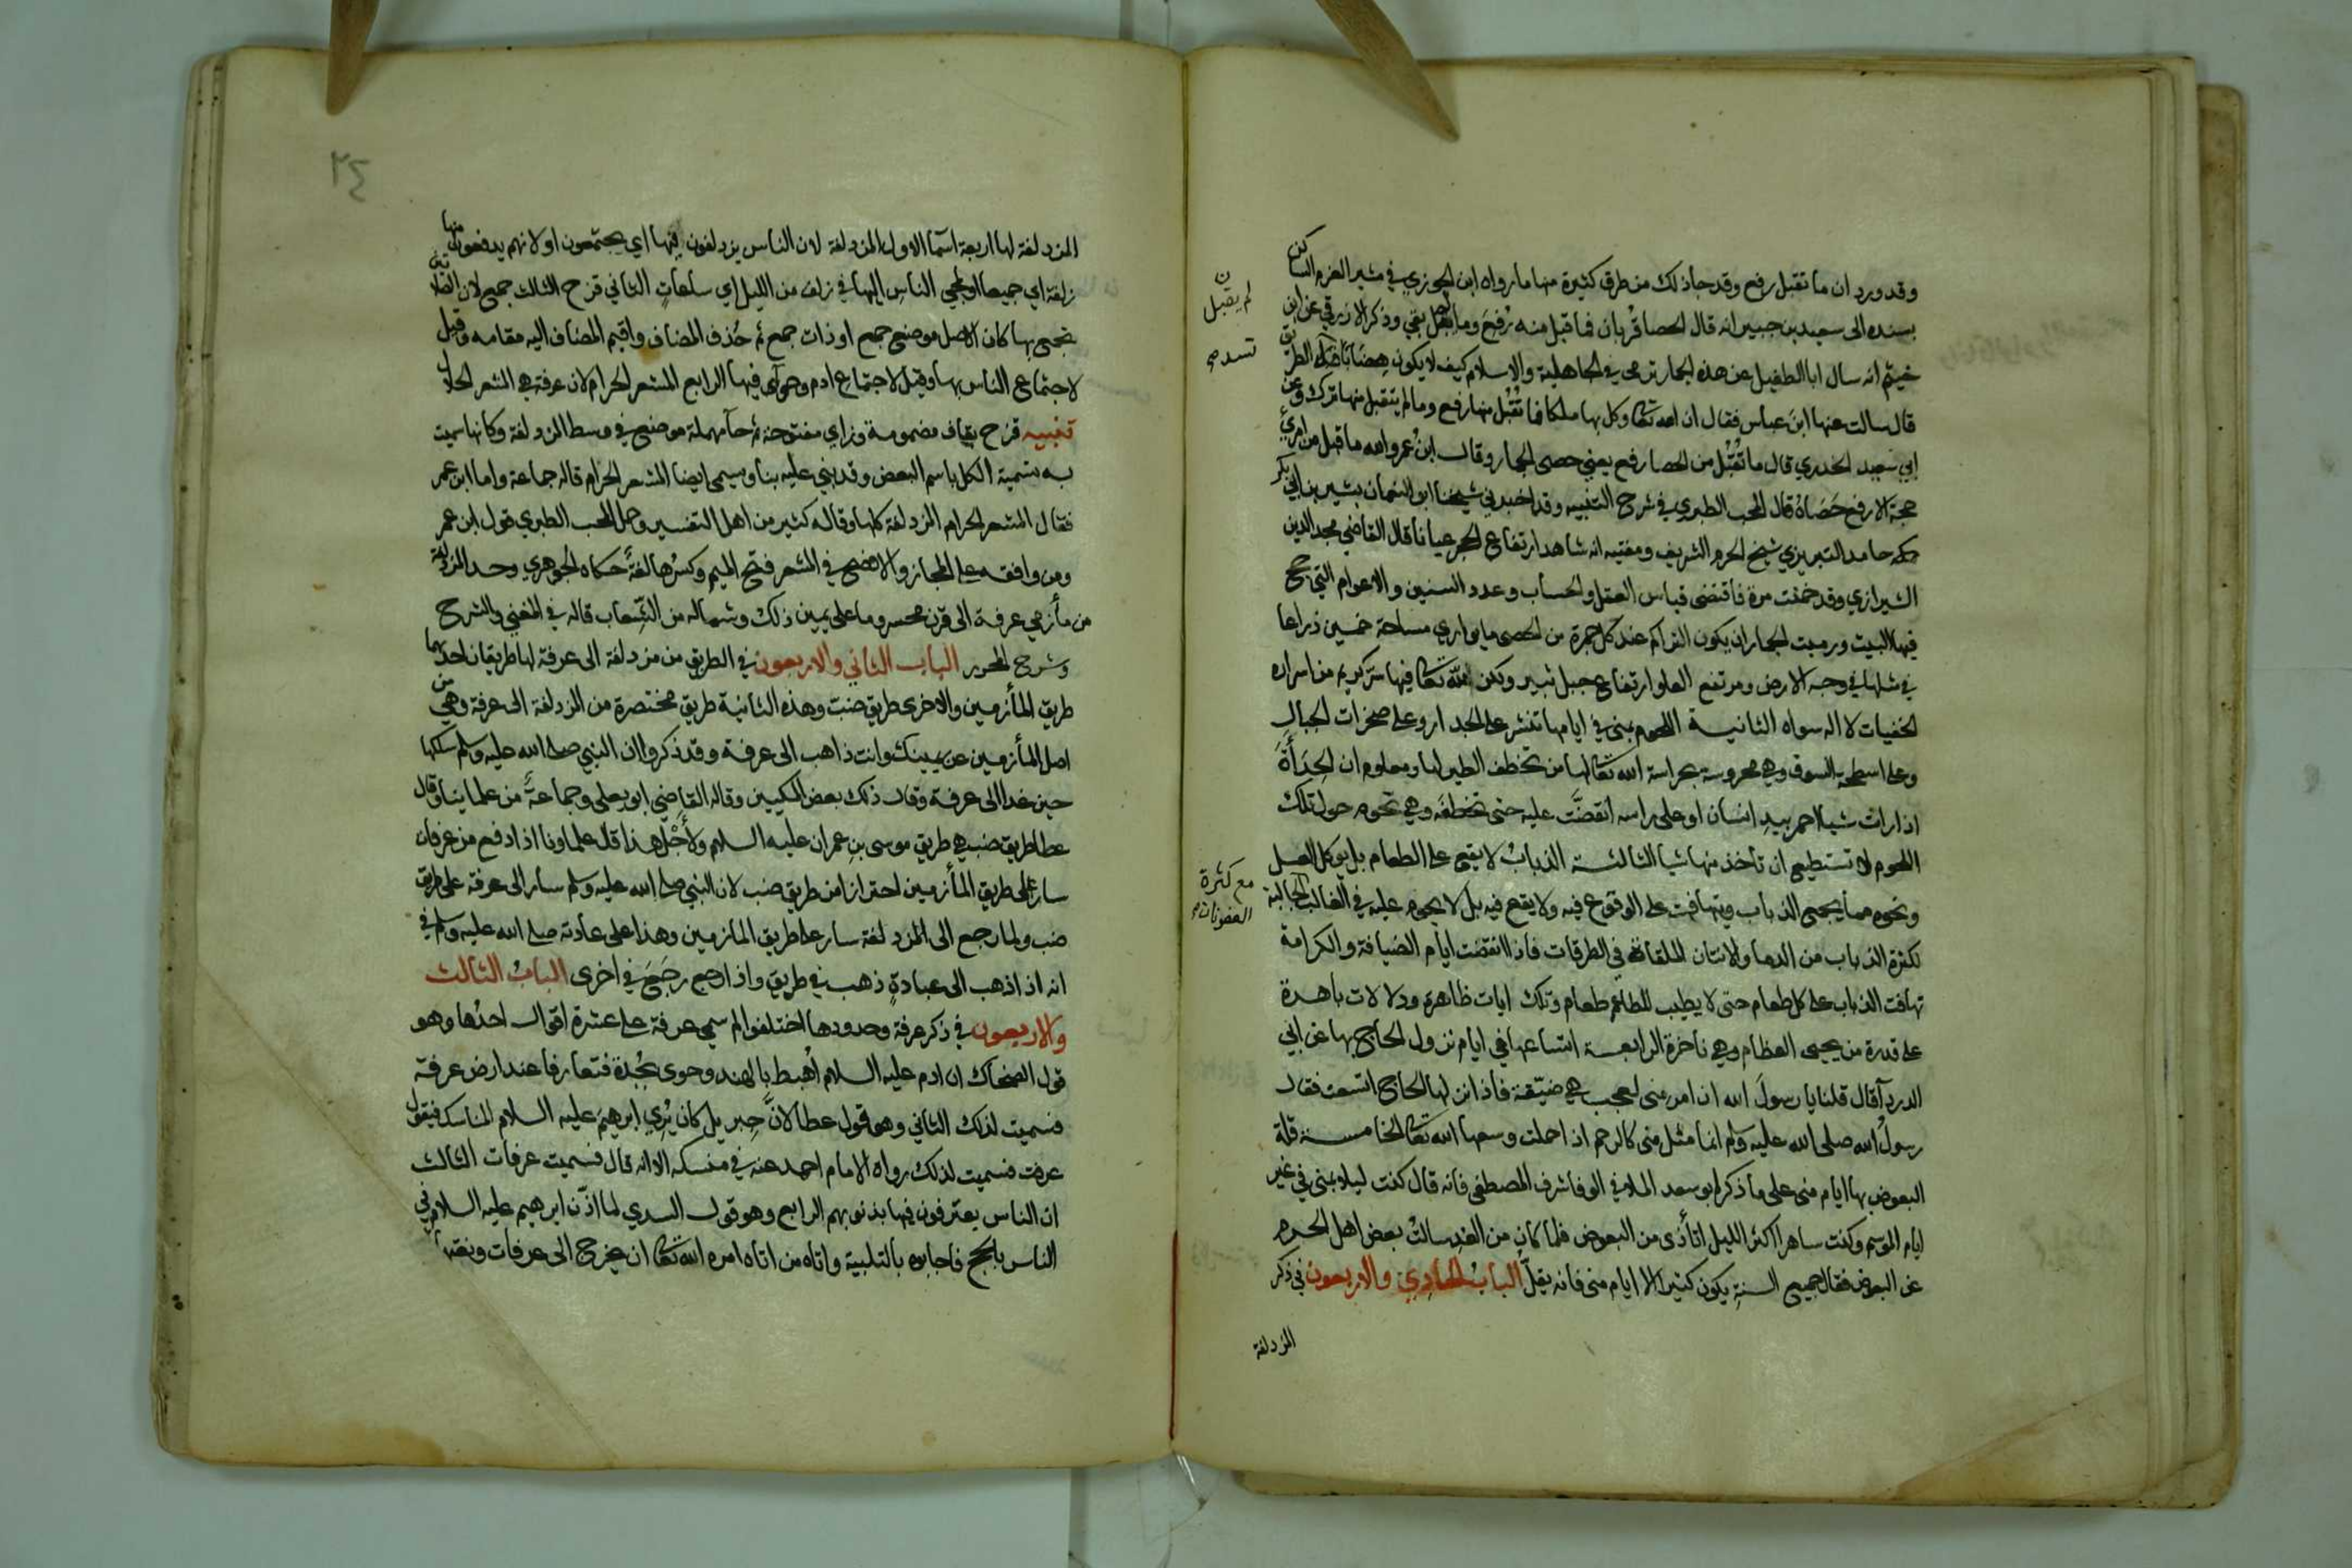 وقد ورد ان ما تقبل رفع وقد جاذلك من طرق كثيرة منها ما رواه ابن الجوزي في مثير العزم الساكن
بسنده الى سعيد بن جبير انه قال الحصا قربان فما قبل منه رفع وما لم يقبل بقي وذكر الازرقي عن ابن
خيثم انه سال ابا الطفيل عن هذه الجمار ترمى في الجاهلية والاسلام كيف لا يكون هضابا تسد الطريق
قال سالت عنها ابن عباس فقال ان الله تعالى وكل بها ملكا فما تقبل منها رفع وما لم يتقبل منها ترك وعن
ابي سعيد الخدري قال ما تقبل من الحصا رفع يعني حصى الجمار وقال ابن عمر والله ما قبل من امرئ
حجة الا رفع حصاه قال المحب الطبري في شرح التنبيه وقد اخبرني شيخنا ابو النعمان بشير بن ابي بكر
حامد التبريزي شيخ الحرم الشريف ومفتيه انه شاهد ارتفاع الحجر عيانا قال القاضي مجد الدين
الشيرازي وقد خمنت مرة فاقتضى قياس العقل والحساب وعدد السنين والاعوام التي حج
فيها البيت ورميت الجمار ان يكون التراكم عند كل جمرة من الحصى ما يواري مساحة خمسين ذراعا
في مثلها في وجه الارض ومرتفع العلو ارتفاع جبل ثبير ولكن لله تعالى فيها سر كريم من اسراره
الخفيات لا اله سواه الثانية اللحوم بمنى في ايامها تنشر على الجدار وعلى صخرات الجبال
وعلى اسطحة السوق وهي محروسة بحراسة الله تعالى لها من تخطف الطير لها ومعلوم ان الحدأة
اذا رات شيا احمر بيد انسان او على راسه انقضت عليه حتى تخطفه وهي تحوم حول تلك
اللحوم لا تستطيع ان تاخذ منها شيا الثالثة الذباب لا يقع على الطعام بل يوكل العسل
ونحوه مما يجمع الذباب ويتهافت على الوقوع فيه ولا يقع فيه بل لا يحوم عليه في الغالب الجالبة
لكثرة الذباب من الدما والانتان الملقاة في الطرقات فاذا انقضت ايام الضيافة والكرامة
تهافت الذباب على كل طعام حتى لا يطيب للطاعم طعام وتلك ايات ظاهرة ودلالات باهرة
على قدرة من يحيى العظام وهي ناخرة الرابعة اتساعها في ايام نزول الحاج بها عن ابي
الدردآ قال قلنا يا رسول الله ان امر منى لعجب هي ضيقة فاذا نزلها الحاج اتسعت فقال
رسول الله صلى الله عليه وسلم انما مثل منى كالرحم اذا حملت وسعها الله تعالى الخامسة قلة
البعوض بها ايام منى على ما ذكر ابو سعد الملا في الوفا شرف المصطفى فانه قال كنت ليلة بمنى في غير
ايام الموسم وكنت ساهرا اكثر الليل اتأذى من البعوض فلما كان من الغد سالت بعض اهل الحرم
عن البعوض فقال جميع السنة يكون كثيرا الا ايام منى فانه يقل الباب الحادي والاربعون في ذكر
المزدلفة
لم يقبل
تسد صح
مع كثرة
العفونات صح
٢٤
المزدلفة لها اربعة اسما الاول المزدلفة لان الناس يزدلفون فيها اي يجتمعون او لانهم يدفعون منها
زلفة اي جميعا او لمجي الناس اليها في زلف من الليل اي ساعات الثاني قزح الثالث جمع لان الصلاتين
تجمع بها كان الاصل موضع جمع او ذات جمع ثم حذف المضاف واقيم المضاف اليه مقامه وقيل
لاجتماع الناس بها وقيل لاجتماع ادم وحوآ فيها الرابع المشعر الحرام لان عرفة هي المشعر الحلال
تنبيه قزح بقاف مضمومة وزاي مفتوحة ثم حآ مهملة موضع في وسط المزدلفة وكانها سميت
به تسمية الكل باسم البعض وقد بني عليه بنا وسيمى ايضا المشعر الحرام قاله جماعة واما ابن عمر
فقال المشعر الحرام المزدلفة كلها وقاله كثير من اهل التفسير وحمل المحب الطبري قول ابن عمر
ومن وافقه على المجاز والافصح في المشعر فتح الميم وكسرها لغة حكاه الجوهري وحد المزدلفة
من مأزمي عرفة الى قرن محسر وما على يمين ذلك وشماله من الشعاب قاله في المغني والشرح
وشرح المحرر الباب الثاني والاربعون في الطريق من مزدلفة الى عرفة لها طريقان احدهما
طريق المأزمين والاخرى طريق ضب وهذه الثانية طريق مختصرة من المزدلفة الى عرفة وهي من
اصل المأزمين عن يمينك وانت ذاهب الى عرفة وقد ذكروا ان النبي صلى الله عليه وسلم سلكها
حين غدا الى عرفة وقال ذلك بعض المكيين وقاله القاضي ابو يعلى وجماعة من علماينا وقال
عطا طريق ضب هي طريق موسى بن عمران عليه السلام ولأجل هذا قال علماونا اذا دفع من عرفات
سار على طريق المأزمين احترازا من طريق ضب لان النبي صلى الله عليه وسلم سار الى عرفة على طريق
ضب ولما رجع الى المزدلفة سار على طريق المازمين وهذا على عادته صلى الله عليه وسلم في
انه اذا ذهب الى عبادة ذهب في طريق واذا رجع رجع في اخرى الباب الثالث
والاربعون في ذكر عرفة وحدودها اختلفوا لم سمي عرفة على عشرة اقوال احدها وهو
قول الضحاك ان ادم عليه السلام أهبط بالهند وحوى بجدة فتعارفا عند ارض عرفة
فسميت لذلك الثاني وهو قول عطا لان جبريل كان يري ابرهيم عليه السلام المناسك فيقول
عرفت فسميت لذلك رواه الامام احمد عنه في منسكه الا انه قال فسميت عرفات الثالث
ان الناس يعترفون فيها بذنوبهم الرابع وهو قول السدي لما اذن ابرهيم عليه السلام في
الناس بالحج فاجابوه بالتلبية واتاه من اتاه امره الله تعالى ان يخرج الى عرفات ونعتها